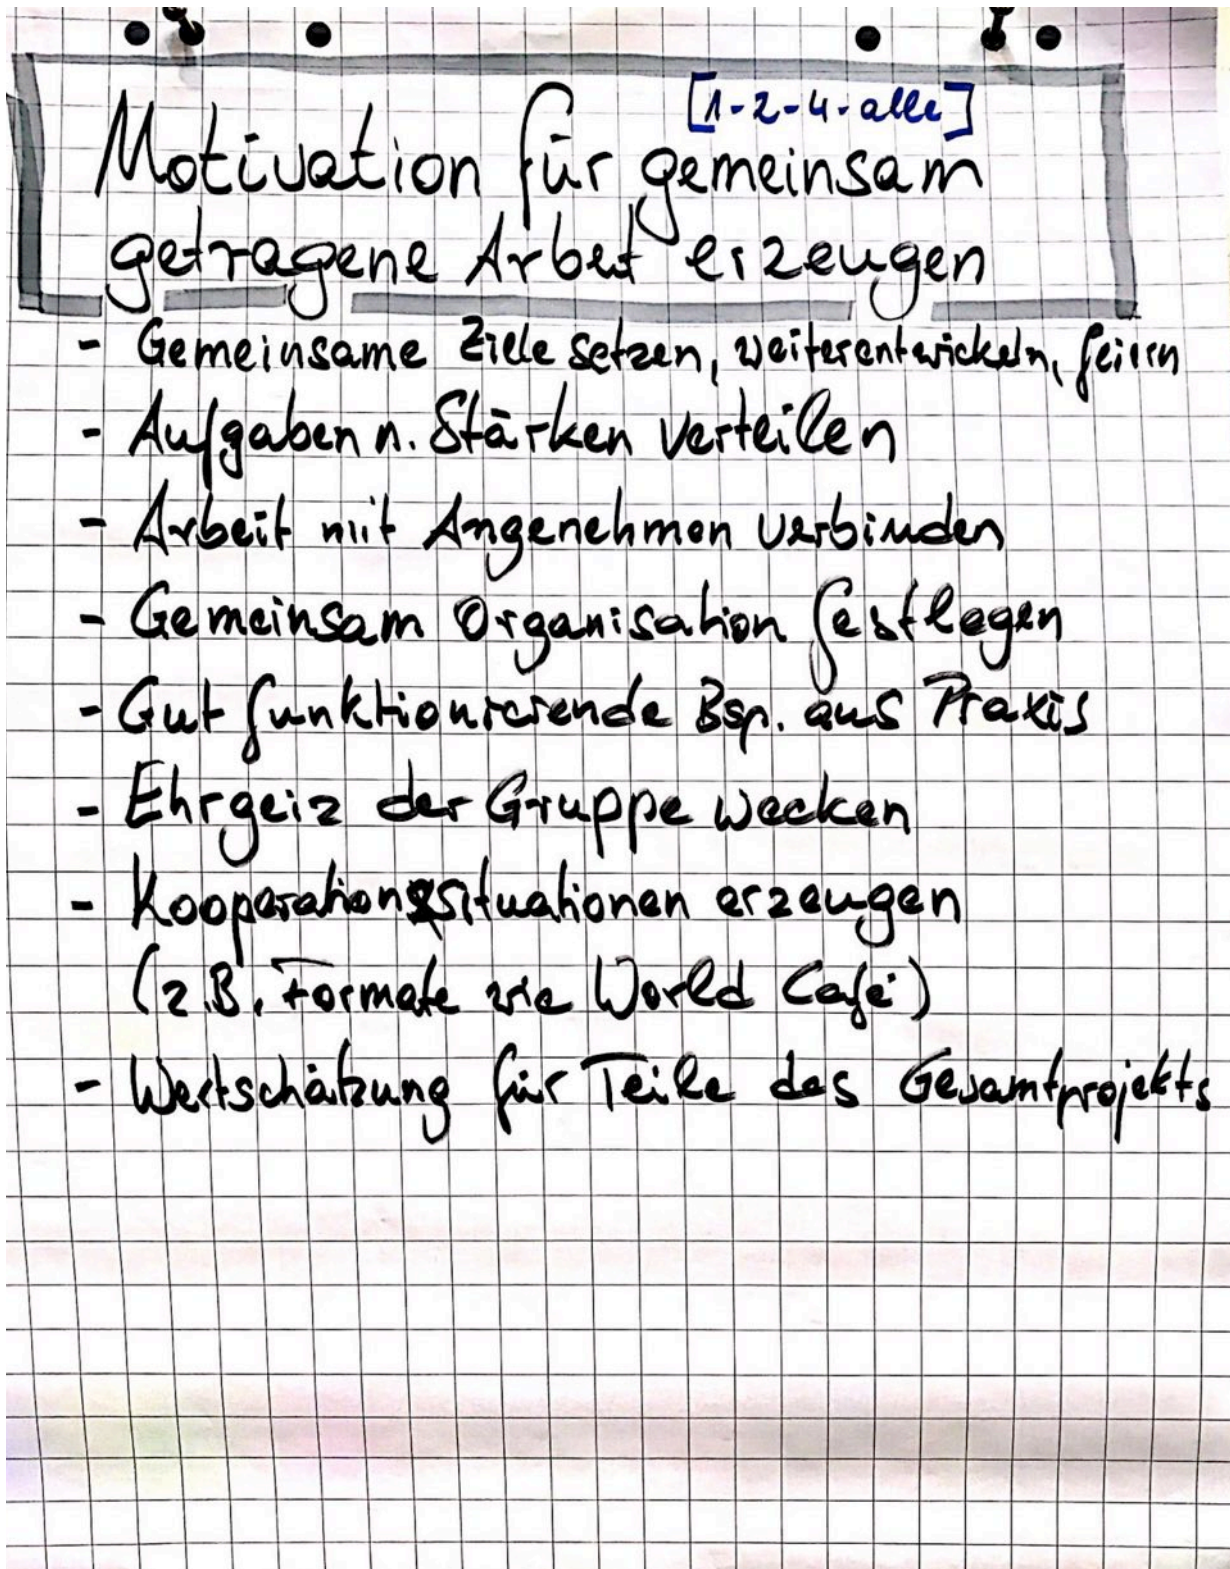 [1-2-4-alle]
Motivation für gemeinsam
getragene Arbeit erzeugen
- Gemeinsame Ziele setzen, weiterentwickeln, feiern
- Aufgaben n. Stärken verteilen
- Arbeit mit Angenehmen verbinden
- Gemeinsam Organisation festlegen
- Gut funktionierende Bsp. aus Praxis
- Ehrgeiz der Gruppe wecken
- Kooperationssituationen erzeugen
(z.B. Formate wie World Café)
- Wertschätzung für Teile des Gesamtprojekts